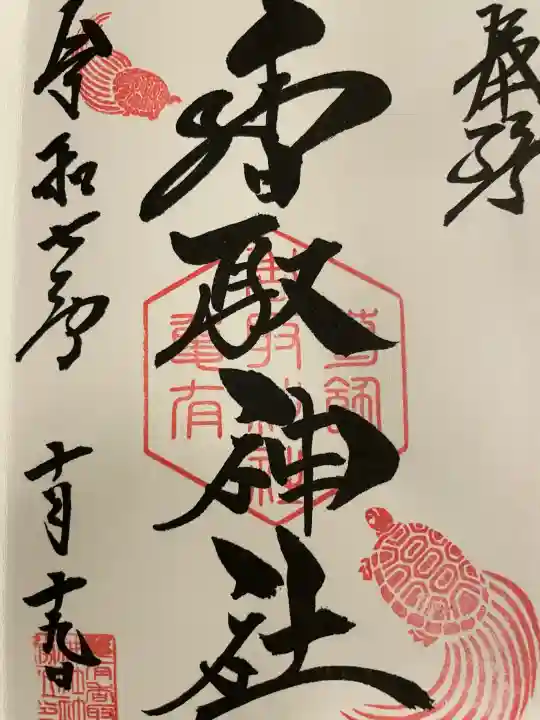 奉拝
香取神社
葛飾
香取神社
亀有
令和七年 十月十九日